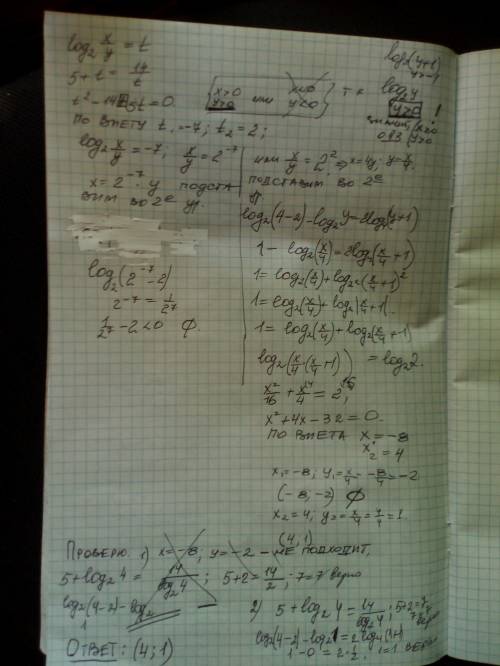 log₂ x/y = t
5+t = 14/t
t² - 14 + 5t = 0
по Виету t₁ = -7; t₂ = 2;
{x>0 y>0 или {x<0 y<0
т.к
log₂(y+1)
y>-1
log₂y
y>0 !
значит, {x>0 y>0
log₂ x/y = -7; x/y = 2⁻⁷
x = 2⁻⁷ · y подста
вим во 2е ур.
log₂(2⁻⁷-2)
2⁻⁷ = 1/2⁷
1/2⁷ - 2 < 0 ∅.
или x/y = 2² ⇒ x=4y; y=x/4.
подставим во 2е
ур.
log₂(4-2) - log₂y = 2log₄(y+1)
1 - log₂(x/4) = 2log₄(x/4 + 1)
1 = log₂(x/4) + log₂²(x/4 + 1)²
1 = log₂(x/4) + log₂|x/4 + 1|.
1 = log₂(x/4) + log₂(x/4 + 1)
log₂(x/4 · (x/4 + 1)) = log₂2.
x²/16 + x/4 = 2;
x² + 4x - 32 = 0.
по Виета x₁ = -8
x₂ = 4
x₁ = -8; y₁ = x/4 = -8/4 = -2
(-8; -2) ∅
x₂ = 4; y₂ = x/4 = 4/4 = 1.
(4; 1)
Проверю. 1) x = -8; y = -2 - не подходит,
5 + log₂4 = 14/log₂4; 5+2 = 14/2; 7=7 верно
log₂(4-2) - log₂
1
2) 5 + log₂4 = 14/log₂4; 5+2=7; 7=7 верно
log₂(4-2) - log₂1 = 2log₄(1+1)
1 - 0 = 2·½; 1=1 верно
Ответ: (4; 1)